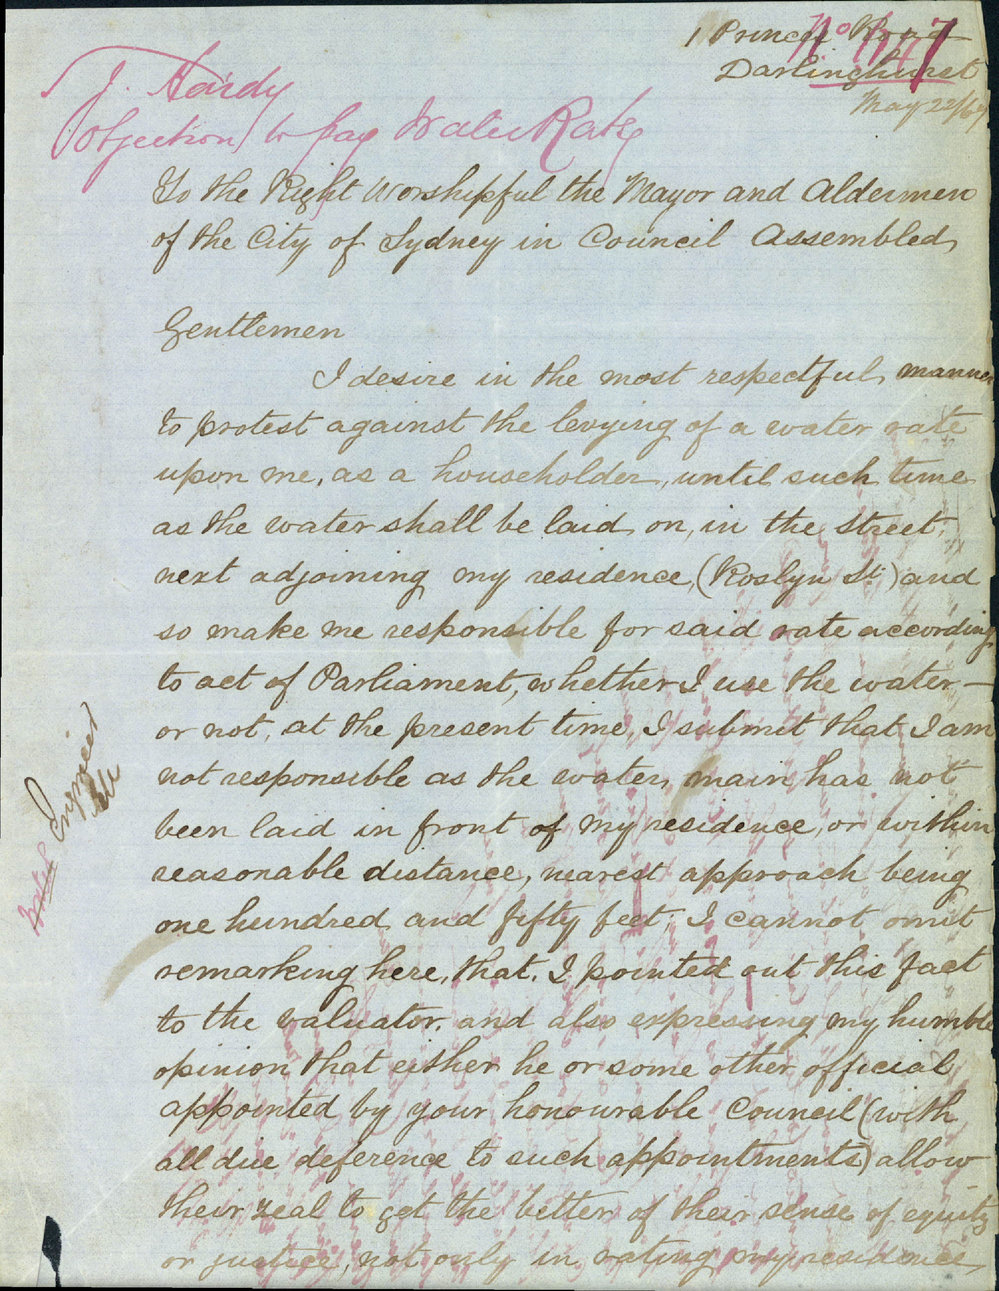 1 Prince's Road
Darlinghurst
May 22/67
J. Hardy
Objection to pay Water Rate
To the Right Worshipful the Mayor and Aldermen
of the City of Sydney in Council Assembled
Gentlemen
I desire in the most respectful manner
to protest against the levying of a water rate
upon me, as a householder, until such time
as the water shall be laid on, in the street,
next adjoining my residence, (Roslyn St.) and
so make me responsible for said rate according
to act of Parliament, whether I use the water —
or not, at the present time, I submit that I am
not responsible as the water main has not
been laid in front of my residence, or within
reasonable distance, nearest approach being
one hundred and fifty feet; I cannot omit
remarking here, that, I pointed out this fact
to the valuator, and also expressing my humble
opinion that either he or some other official
appointed by your honourable Council (with
all due deference to such appointments) allow
their zeal to get the better of their sense of equity
or justice, not only in rating my residence
Engineer